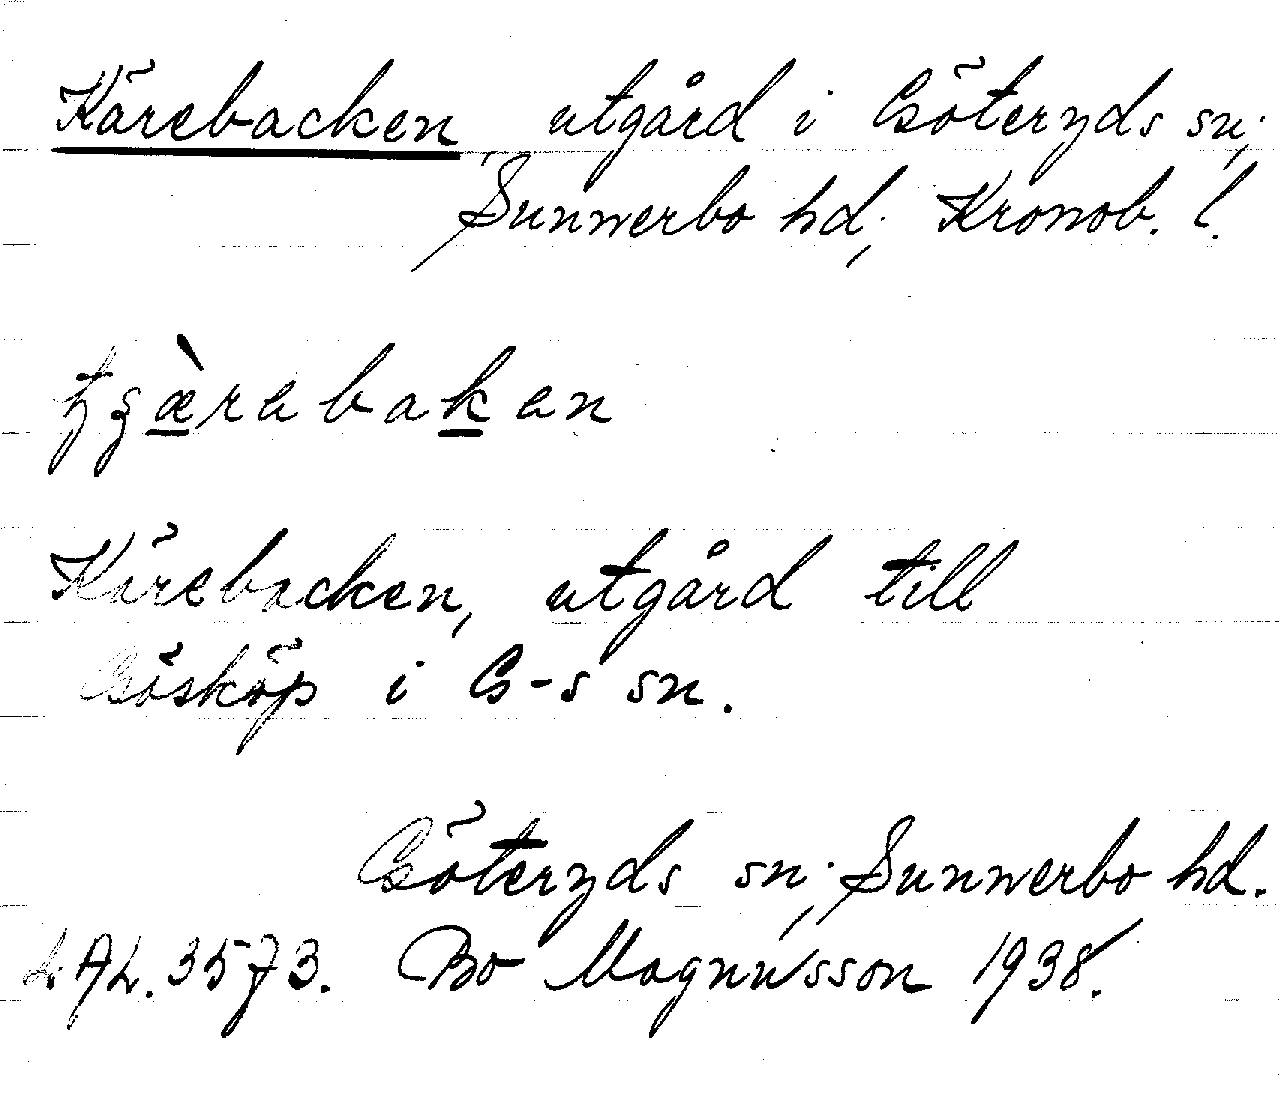 Kärebacken, utgård i Göteryds sn;
Sunnerbo hd; Kronob. l.
Kärebacken, utgård till
Gösköp i G-s sn.
Göteryds sn; Sunnerbo hd.
LAL. 3573. Bo Magnusson 1938.